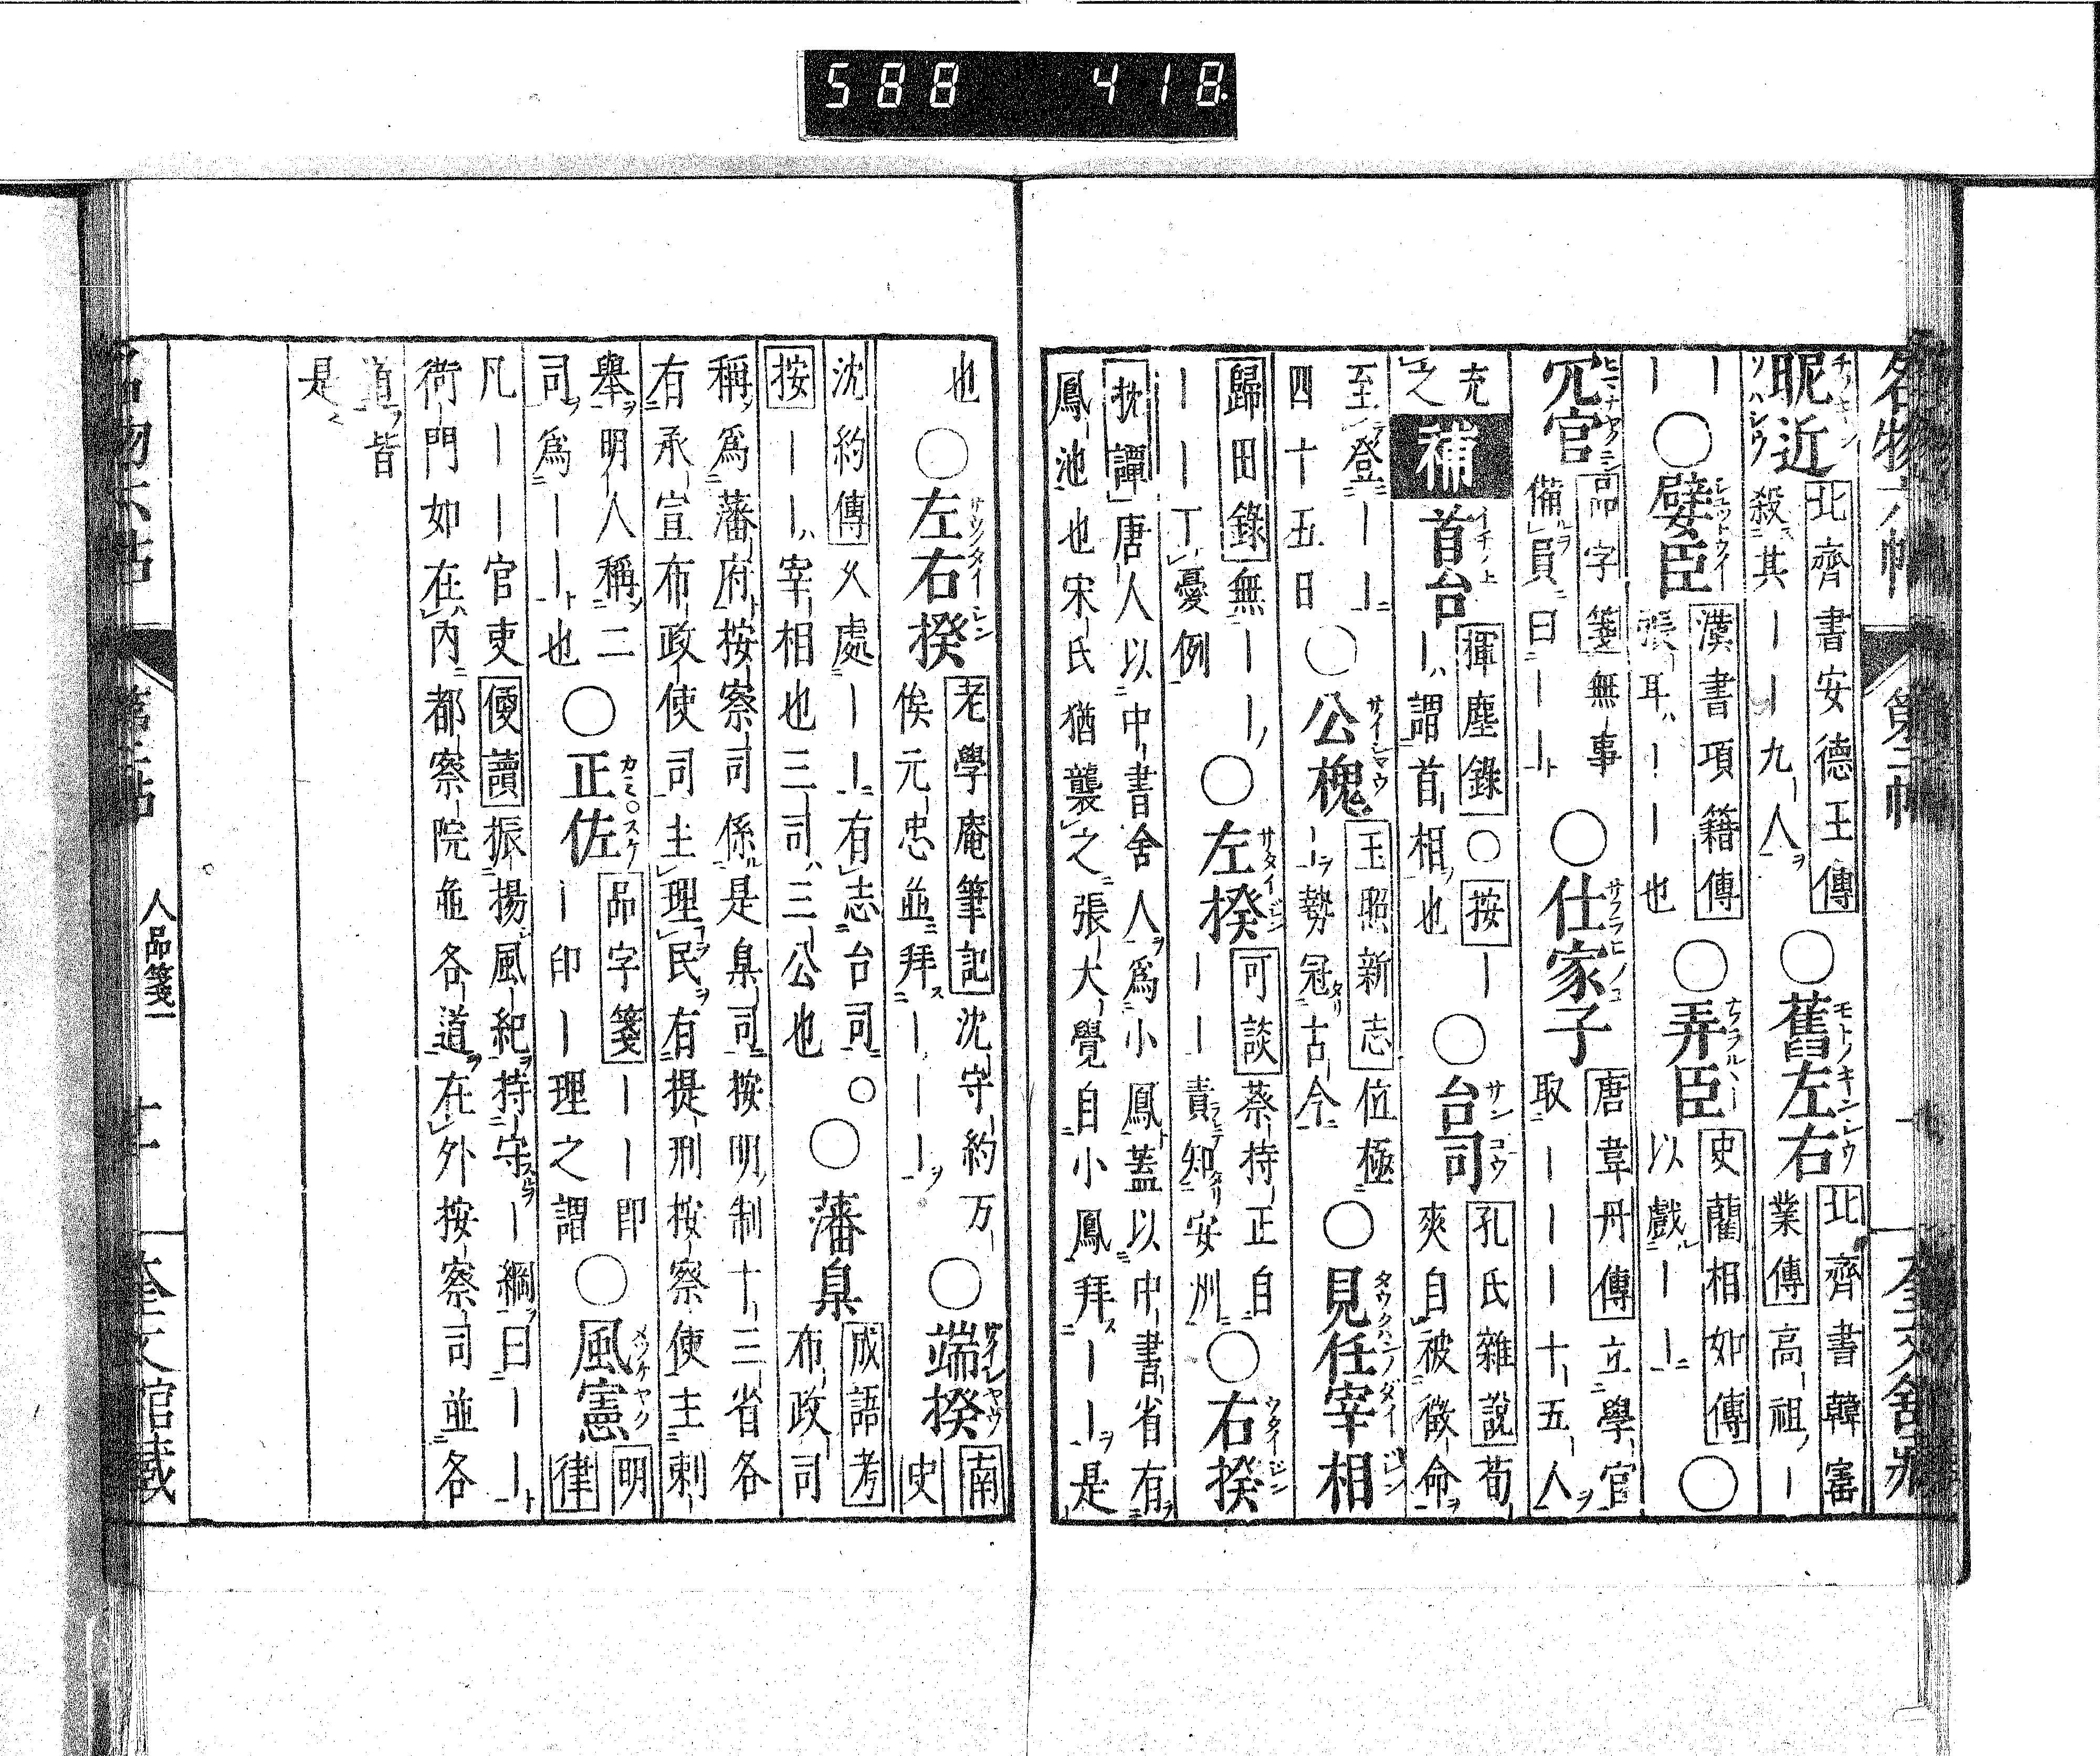 588 418.
名物六帖 第二帖 奎文舘藏
昵近 北齊書安德王傳 殺其一一九人 〇舊左右 北齊書韓寶業傳 高祖ノ一
一一 〇嬖臣 漢書項籍傳 張耳ハ一一也 〇弄臣 史藺相如傳 以戲一一 〇
冗官 品字箋 無事備員曰一一 〇仕家子 唐韋丹傳 立學官取一一一十五人
充之 補 首台 揮塵錄 〇按一一ハ謂首相也 〇台司 孔氏雜說 荀爽自被徵命
至登一一 四十五日 〇公槐 玉照新志 位極一一勢冠古今 〇見任宰相
歸田錄 無一一一一丁憂例 〇左揆 可談 蔡持正自一一責知安州 〇右揆
捫譚 唐人以中書舍人爲小鳳蓋以中書省有鳳池也宋氏猶襲之張大覺自小鳳拜一一是
也 〇左右揆 老學庵筆記 沈守約万俟元忠並拜一一一 〇端揆 南史
沈約傳 乆處一一有志台司 〇按一一ハ宰相也三司ハ三公也 〇藩臬 成語考 布政司
稱爲藩府按察司係是臬司 按明制十三省各有承宣布政使司主理民有提刑按察使主刺
舉明人稱二司爲一一也 〇正佐 品字箋 一一即一印一理之謂 〇風憲 明律
凡一一官吏 便讀 振揚風紀持守一綱曰一一 衙門如在內都察院並各道在外按察司並各
道皆是
人品箋一 十一 奎文舘藏